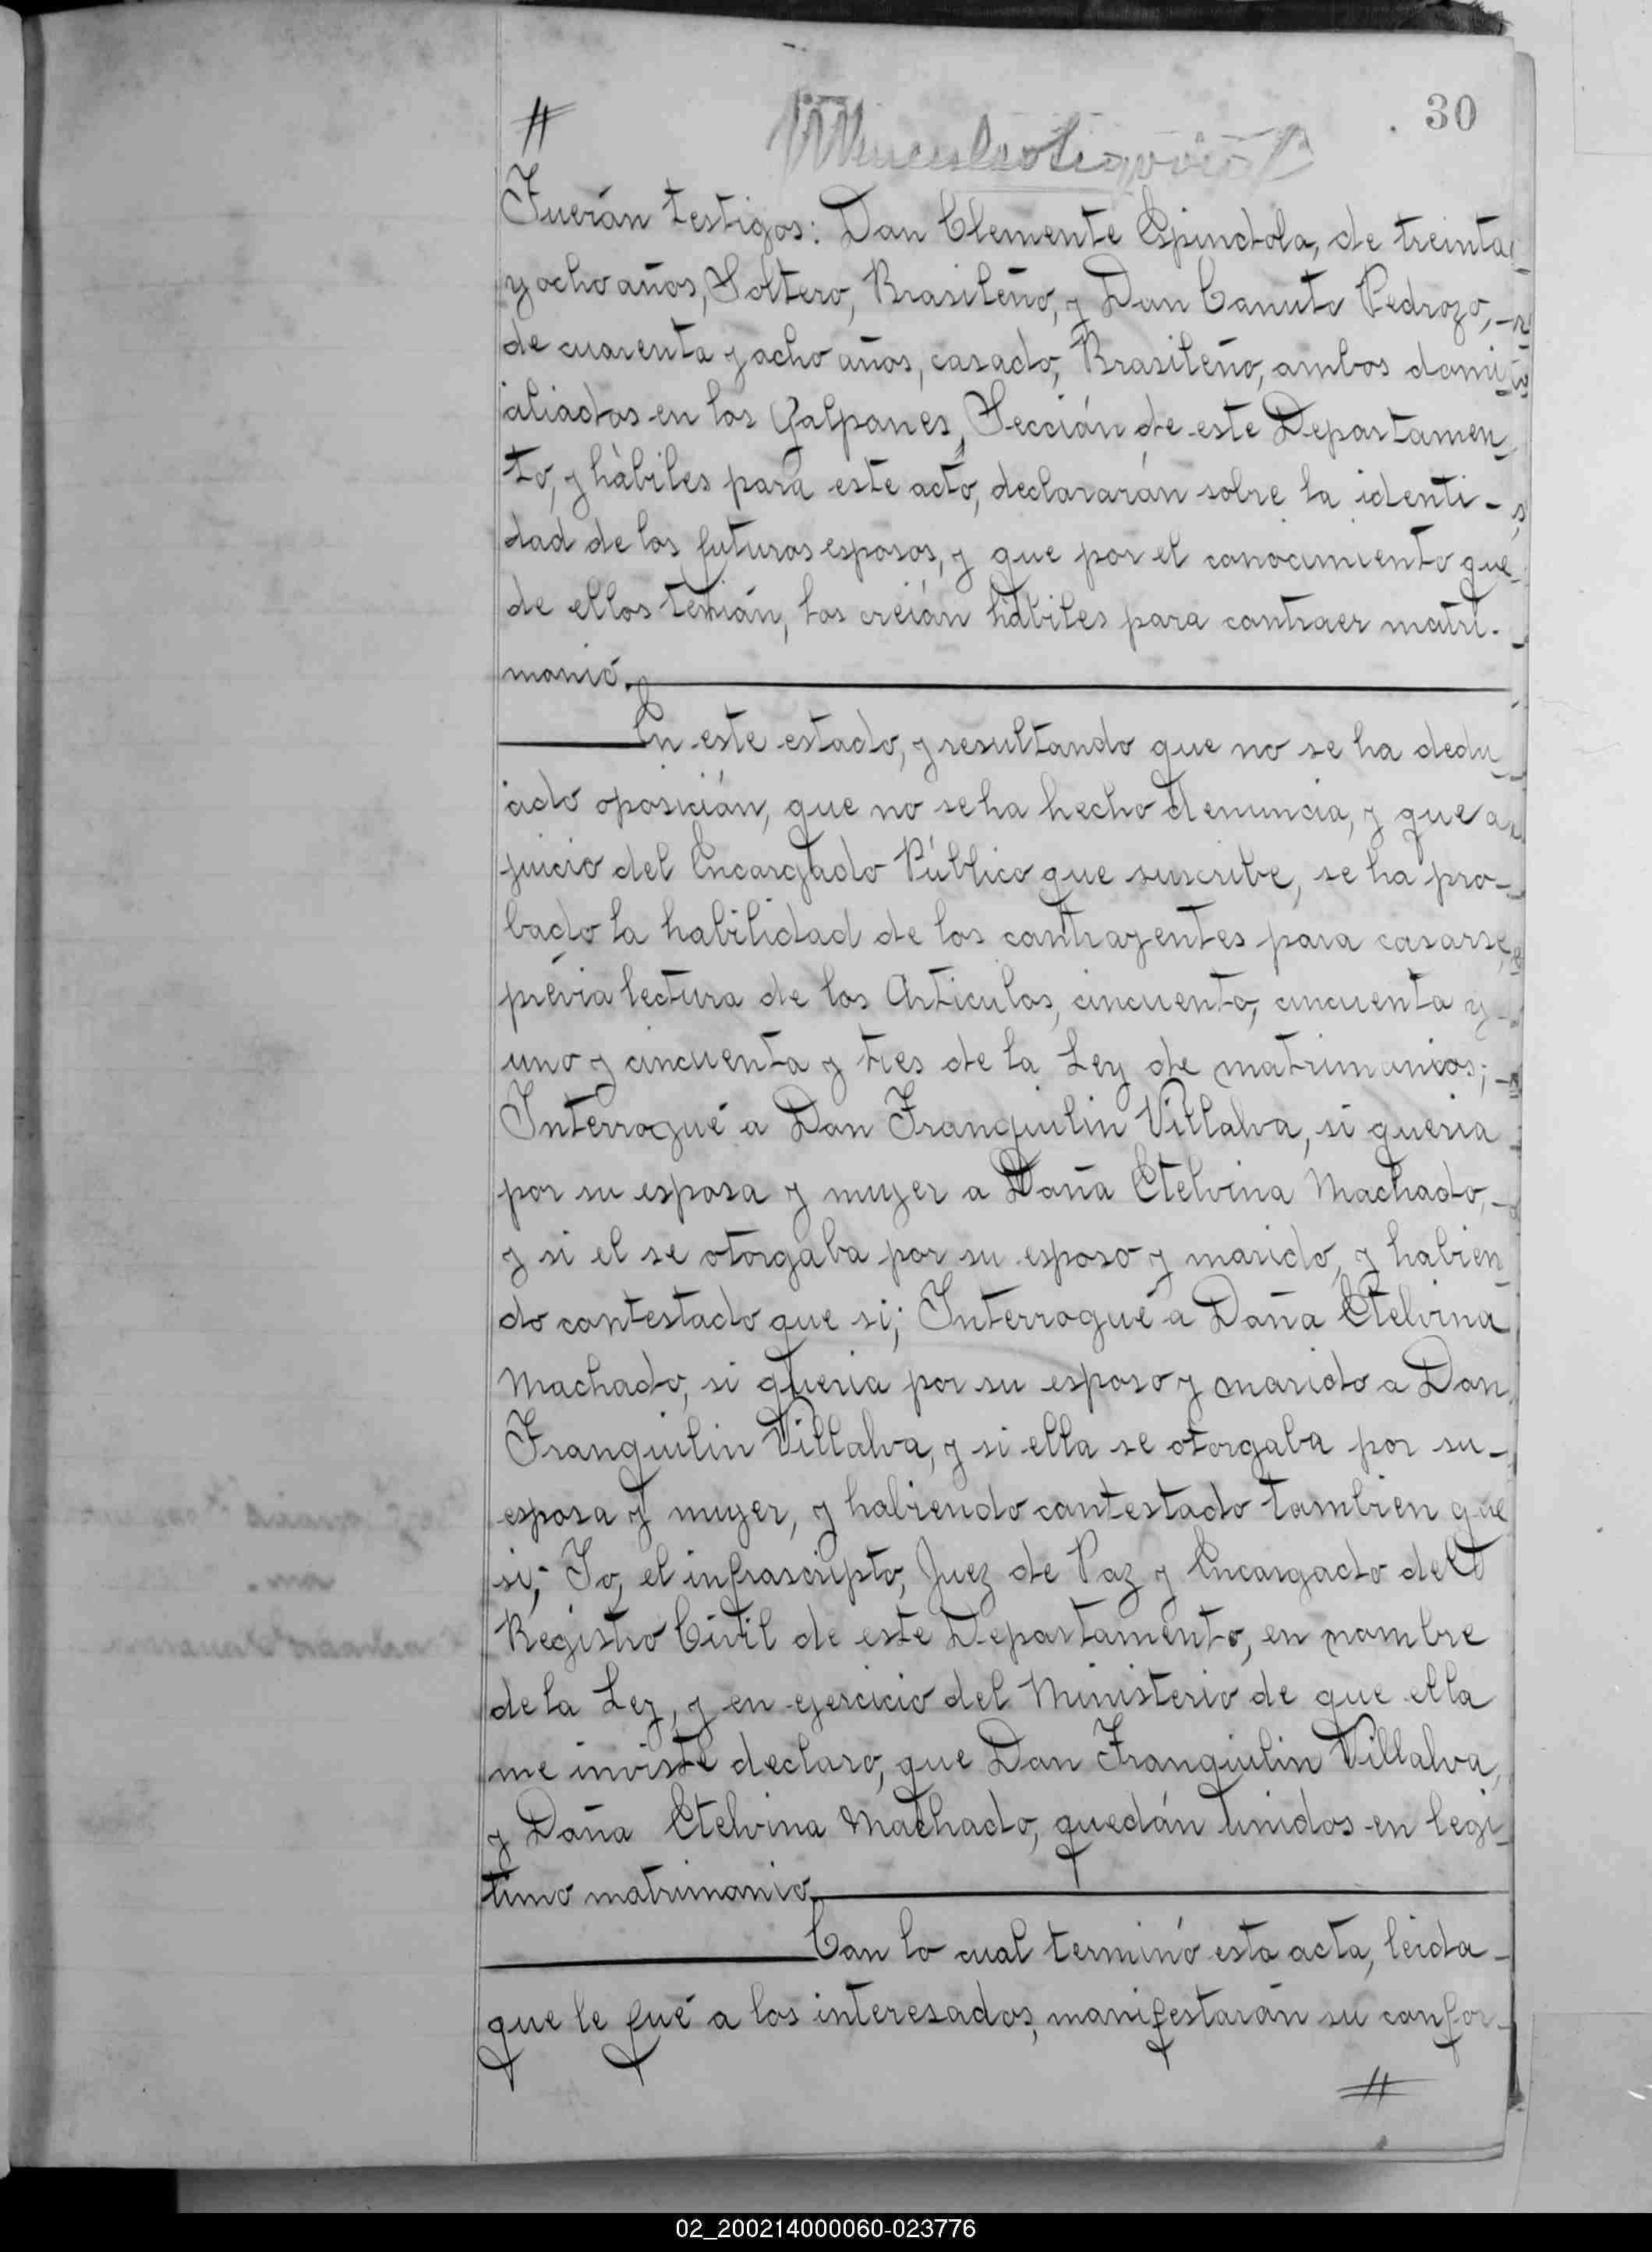 30
#
Fuerán testigos: Don Clemente Espindola, de treinta
y ocho años, Soltero, Brasileño, y Don Canuto Pedrozo,-
de cuarenta y ocho años, casado, Brasileño, ambos domi
ciliados en los Galpones, Sección de este Departamen
to, y hàbiles para éste acto, declararán sobre la identi-
dad de los futuros esposos, y que por el conocimiento que
de ellos tenián, los creián hàbiles para contraer matri-
monió.
En este estado, y resultando que no se ha dedu
cido oposición, que no se ha hecho denuncia, y que a
juicio del Encargado Público que suscribe, se ha pro-
bado la habilidad de los contrayentes para casarse,
prévia lectura de los Articulos, cincuenta, cincuenta y
uno y cincuenta y tres de la Ley de matrimonios;-
Interrogué a Don Franquilin Villalva, si queria
por su esposa y mujer a Doña Etelvina Machado,-
y si el se otorgaba por su esposo y marido, y habien
do contestado que si; Interrogué a Doña Etelvina
Machado, si queria por su esposo y marido a Don
Franquilin Villalva, y si ella se otorgaba por su-
esposa y mujer, y habiendo contestado tambien que
si;- Yo, el infrascripto, Juez de Paz y Encargado del
Registro Civil de este Departamento, en nombre
de la Ley, y en ejercicio del Ministerio de que ella
me inviste declaro, que Don Franquilin Villalva,
y Doña Etelvina Machado, quedán unidos en legi
timo matrimonio.
Con lo cual terminó esta acta, leida-
que le fué a los interesados, manifestarán su confor-
#
02_200214000060-023776